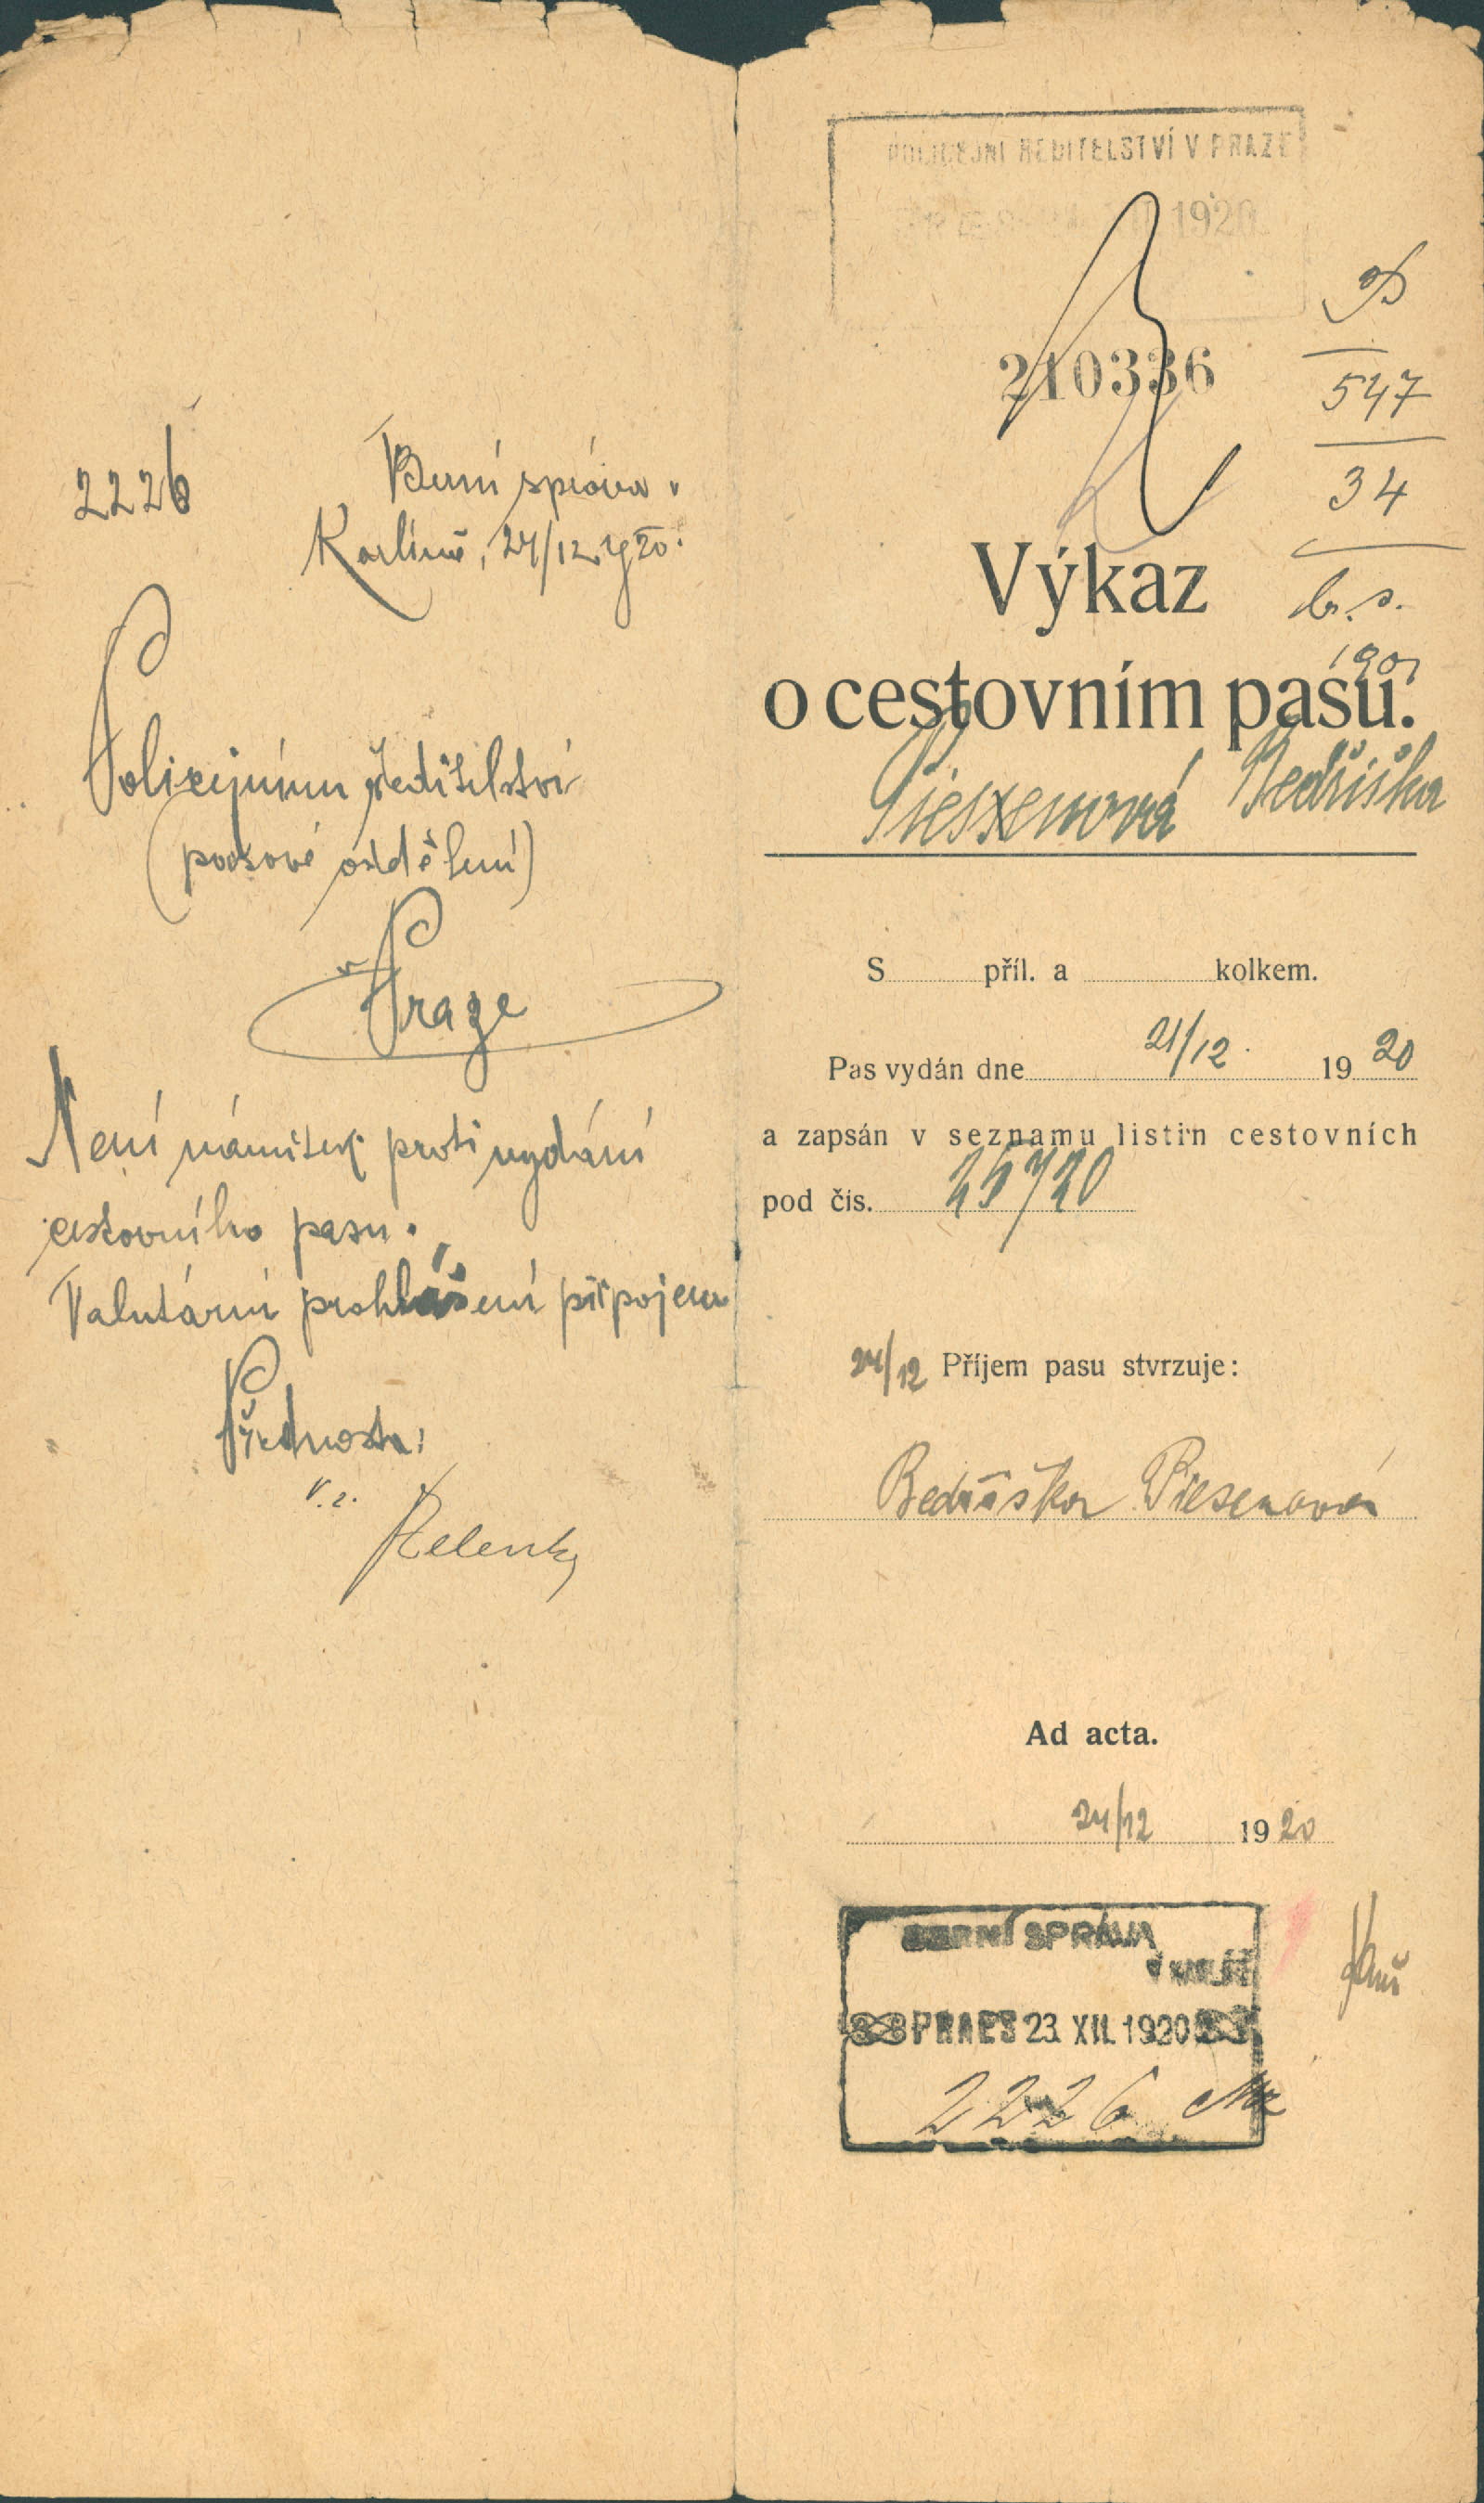 2226
Berní správa v
Karlíně, 24/12 1920.
Policejnímu ředitelství
(pasové oddělení)
v Praze
Není námitek proti vydání
cestovního pasu.
Valutární prohlášení připojeno
Přednosta:
v. z.
POLICEJNÍ ŘEDITELSTVÍ V PRAZE
1920
210336
547
34
Výkaz
o cestovním pasu.
Piesenová Bedřiška
S příl. a kolkem.
Pas vydán dne 21/12. 1920
a zapsán v seznamu listin cestovních
pod čís. 25720
24/12 Příjem pasu stvrzuje:
Bedřiška Piesenová
Ad acta.
24/12 1920
BERNÍ SPRÁVA
PRAES 23. XII. 1920
2226